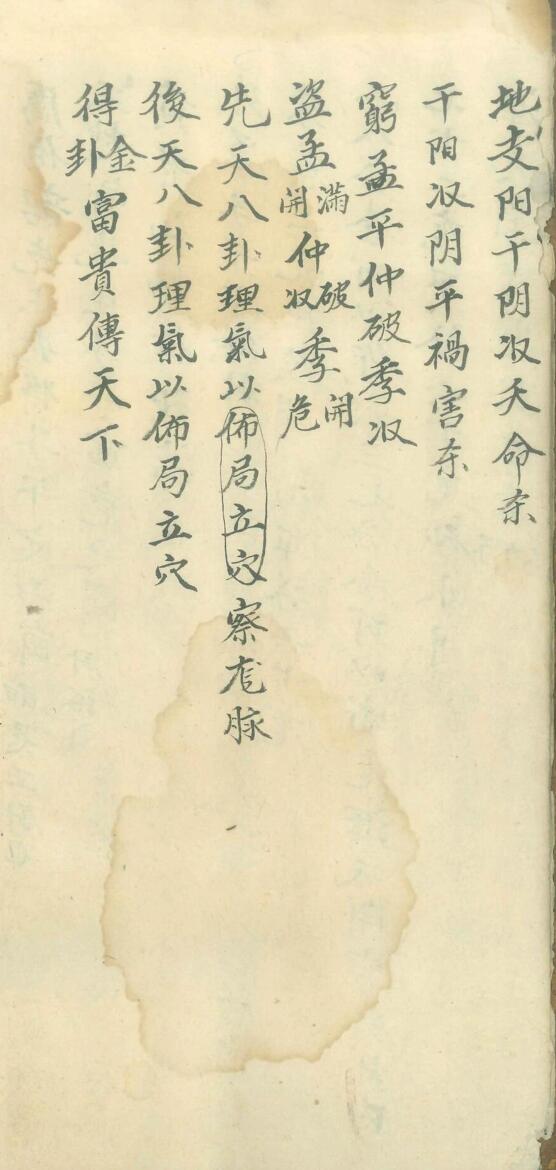 地支阳干阴収夭命奈
干阳収阴平禍害奈
窮孟平仲破季収
盜孟滿開仲破収季開危
先天八卦理氣以佈局立穴察龙脉
後天八卦理氣以佈局立穴
得金卦富貴傳天下